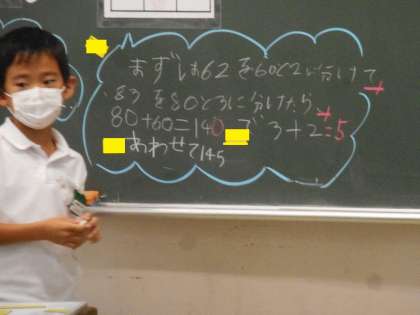 まずは62を60と2に分けて
83を80と3に分けたら
80+60=140で3+2=5
あわせて145